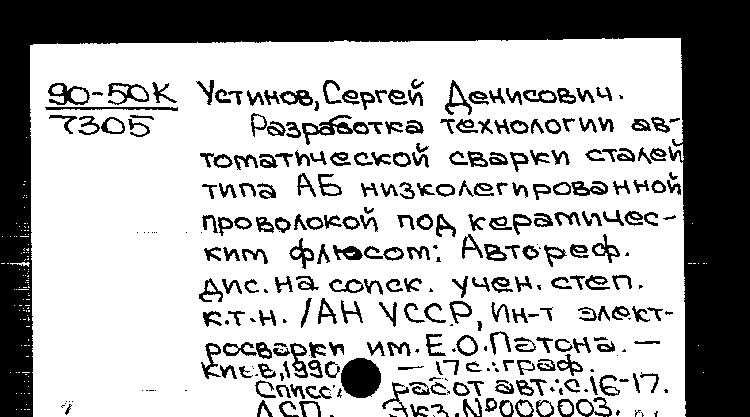 90-50К Устинов, Сергей Денисович.
7305 Разработка технологии ав-
томатической сварки сталей
типа АБ низколегированной
проволокой под керамичес-
ким флюсом: Автореф.
дис. на соиск. учен. степ.
к.т.н. /АН УССР, Ин-т элект-
росварки им. Е.О.Патона. —
Киев, 1990 — 17 с.: граф.
Список работ авт.: с.16-17.
ДСП. Экз.№000003.